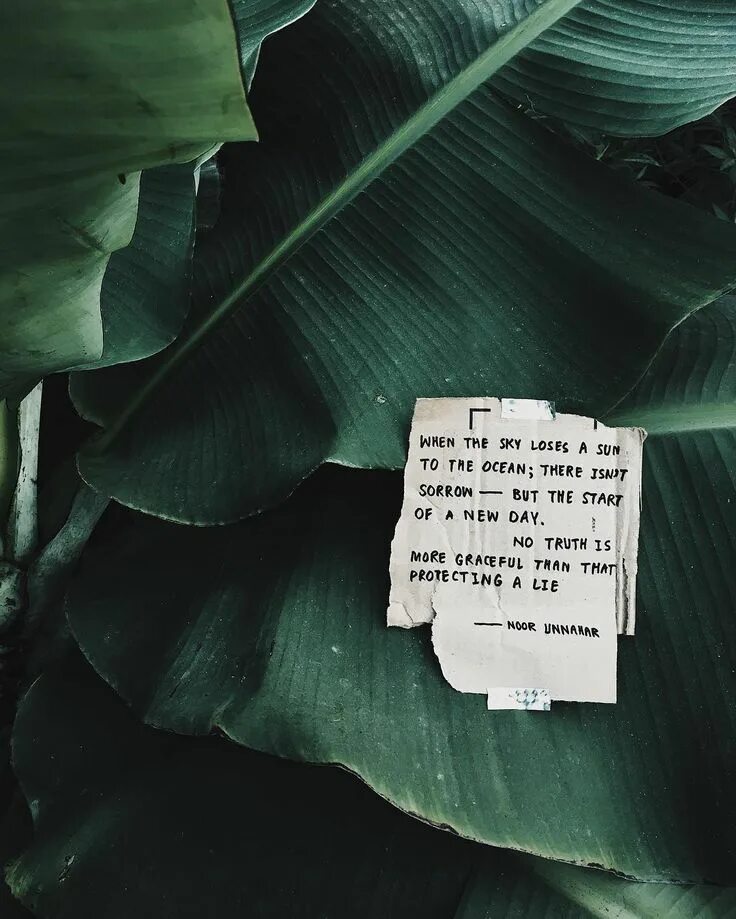 WHEN THE SKY LOSES A SUN
TO THE OCEAN; THERE ISN'T
SORROW — BUT THE START
OF A NEW DAY.
NO TRUTH IS
MORE GRACEFUL THAN THAT
PROTECTING A LIE
— NOOR UNNAHAR